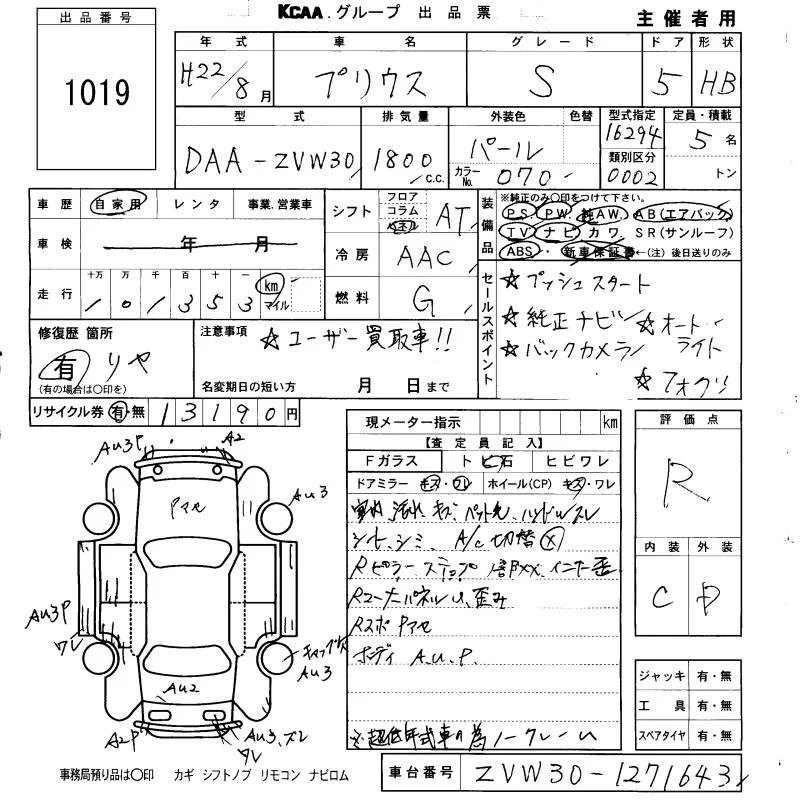 KCAA.グループ 出品票
主催者用
出品番号
1019
年式 車名 グレード ドア 形状
H22/8月 プリウス S 5 HB
型式 排気量 外装色 色替 型式指定 定員・積載
DAA-ZVW30 1800c.c. パール 16294 5名
カラーNo. 070 類別区分 0002 トン
車歴 自家用 レンタ 事業.営業車
車検 年 月
走行 十万 万 千 百 十 一
1 0 1 3 5 3 km マイル
シフト フロア コラム パネル AT
冷房 AAC
燃料 G
装備品
※純正のみ○印をつけて下さい。
PS PW 純AW AB(エアバック)
TV ナビ カワ SR(サンルーフ)
ABS・新車保証書←(注)後日送りのみ
セールスポイント
☆プッシュスタート
☆純正ナビ ☆オートライト
☆バックカメラ
☆フォグ
修復歴 箇所
有 リヤ
(有の場合は○印を)
注意事項
☆ユーザー買取車!!
名変期日の短い方 月 日まで
リサイクル券 有・無 13190円
現メーター指示 km
【査定員記入】
Fガラス トビ石 ヒビワレ
ドアミラー キズ・ワレ ホイール(CP) キズ・ワレ
シート、シミ、 A/C切替☒
Rピラー、ステップ
Rコーナーパネルu、歪み
Rスポ
ボディ A.U.P.
※超低年式車の為ノークレーム
評価点
R
内装 外装
C D
ジャッキ 有・無
工具 有・無
スペアタイヤ 有・無
AU3P A2
AU3
AU3P
ワレ
AU3
AU2
A2P AU3.ズレ
ワレ
事務局預り品は○印 カギ シフトノブ リモコン ナビロム
車台番号 ZVW30-1271643